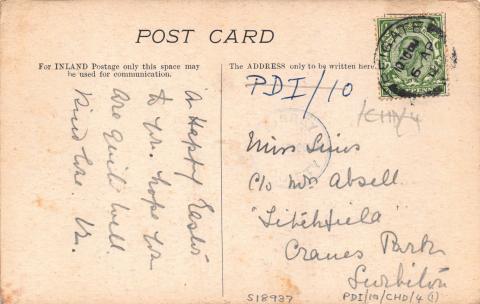 POST CARD
For INLAND Postage only this space may
be used for communication.
The ADDRESS only to be written here.
PDI/10
/CHD/4
A Happy Easter
to you. hope you
are quite well.
Kind love.
Miss Sims
c/o Mrs Absell
"Litchfield"
Cranes Park
Surbiton
S18937
PDI/10/CHD/4(1)